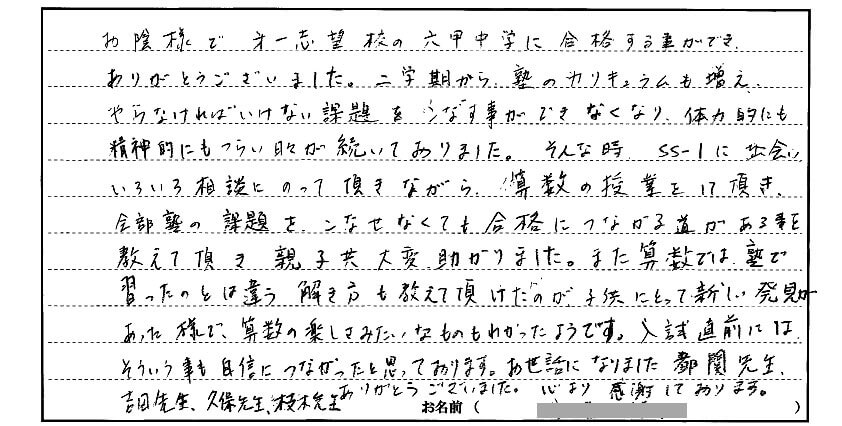 お陰様で 第一志望校の 六甲中学に 合格する事ができ
ありがとうございました。二学期から、塾のカリキュラムも増え、
やらなければいけない課題を こなす事ができなくなり、体力的にも
精神的にもつらい日々が続いておりました。そんな時 SS-1に出会い
いろいろ相談にのって頂きながら、算数の授業を 頂き、
全部塾の課題をこなせなくても合格につながる道がある事を
教えて頂き 親子共大変助かりました。また算数では、塾で
習ったのとは違う 解き方も教えて頂けたのが、子供にとって新しい発見が
あった様で、算数の楽しさみたいなものもわかったようです。入試直前には
そういう事も自信につながったと思っております。お世話になりました 都関先生、
吉田先生、久保先生、枝木先生ありがとうございました。心より感謝しております。
お名前( )